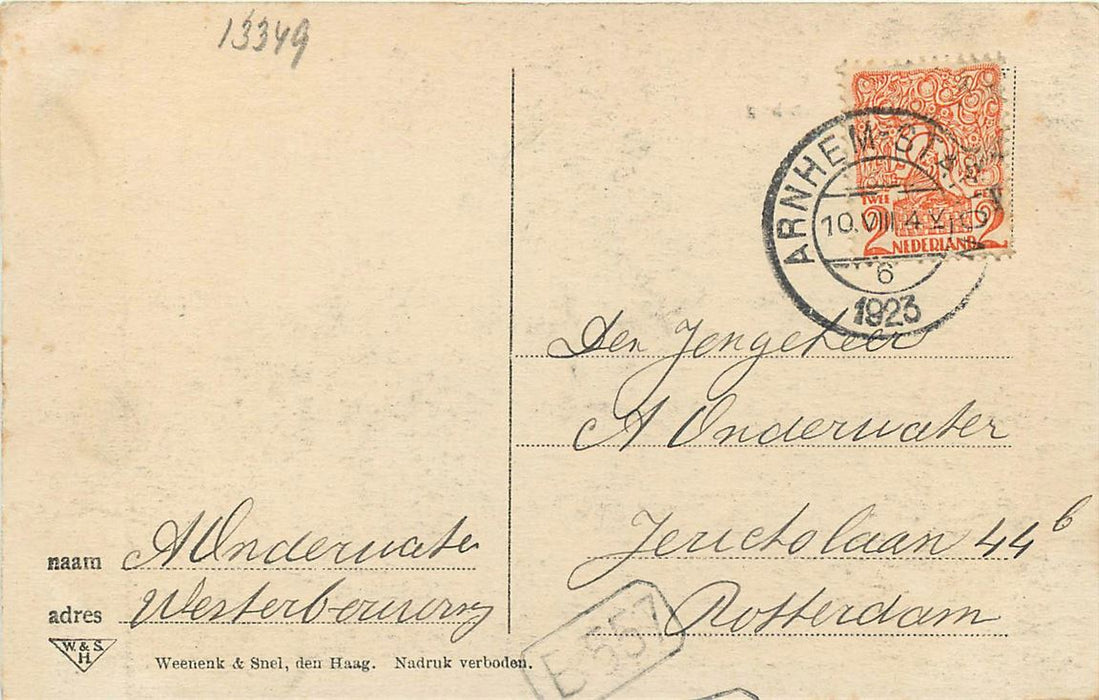 13349
ARNHEM-STATION
10.VIII.4 V
6
1923
TWEE
2 2
NEDERLAND
Den Jongeheer
A Onderwater
Jericholaan 44 b
Rotterdam
naam A Onderwater
adres Westerbouwing
W. & S.
H
Weenenk & Snel, den Haag. Nadruk verboden.
E 557